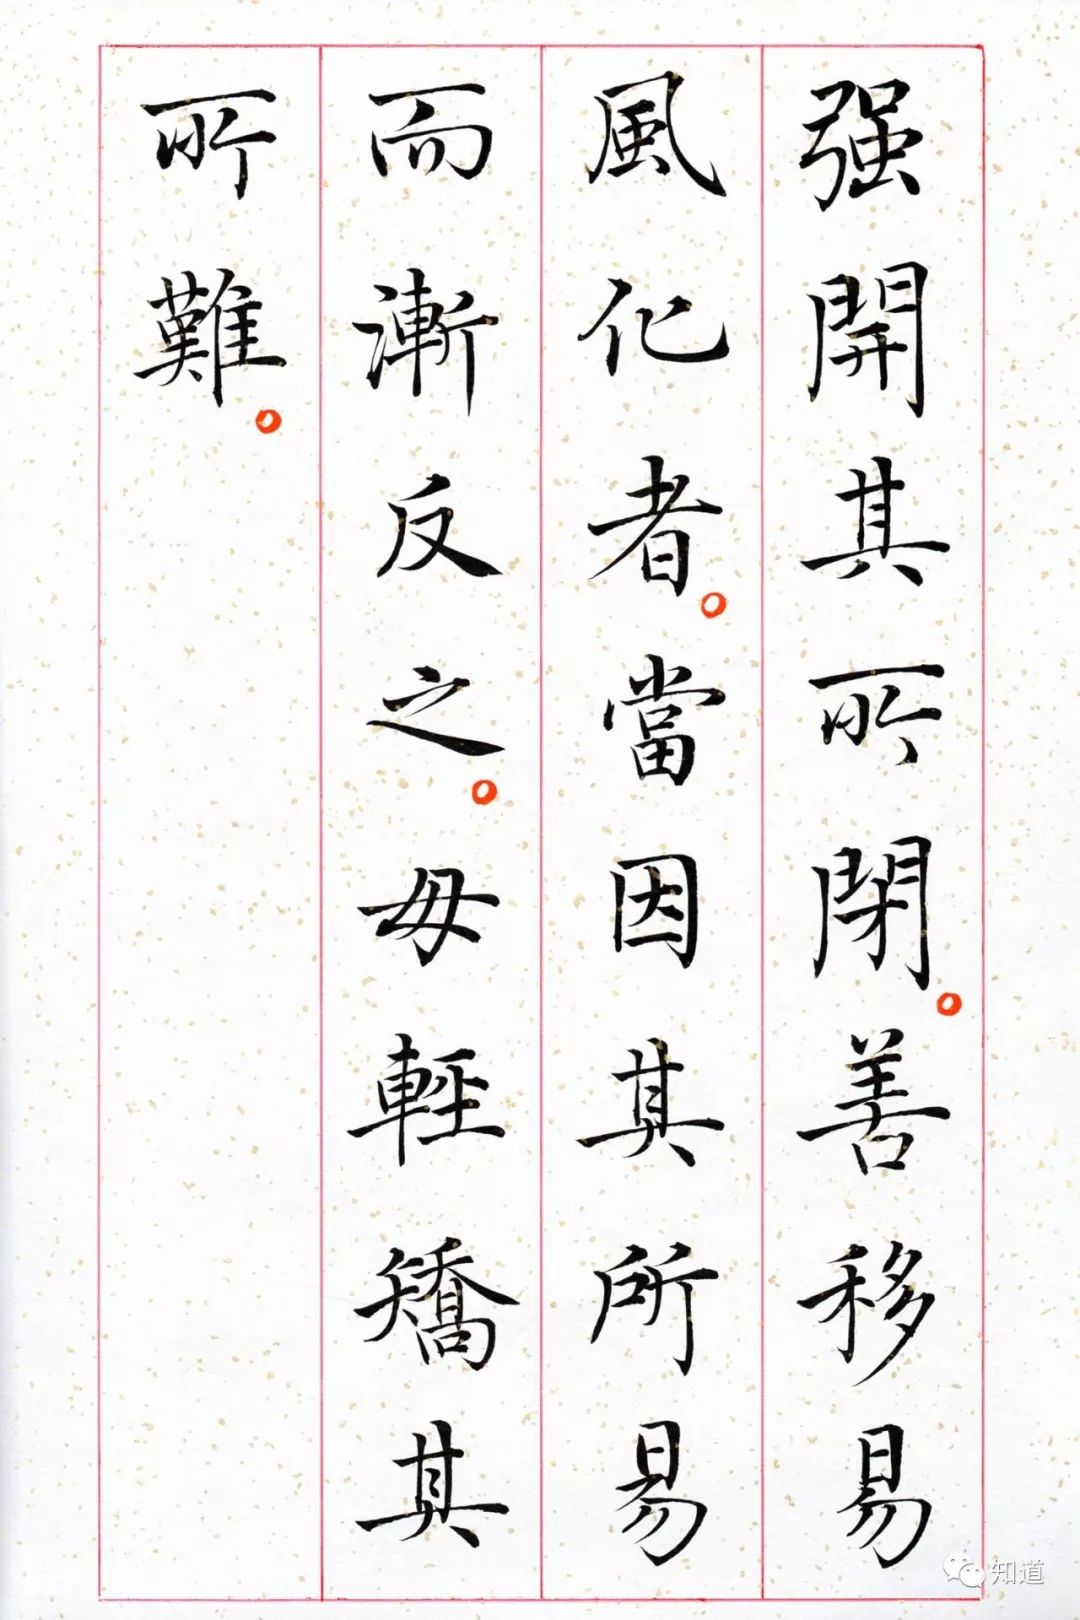 强開其所閉。善移易
風化者。當因其所易
而漸反之。毋輕矯其
所難。
知道